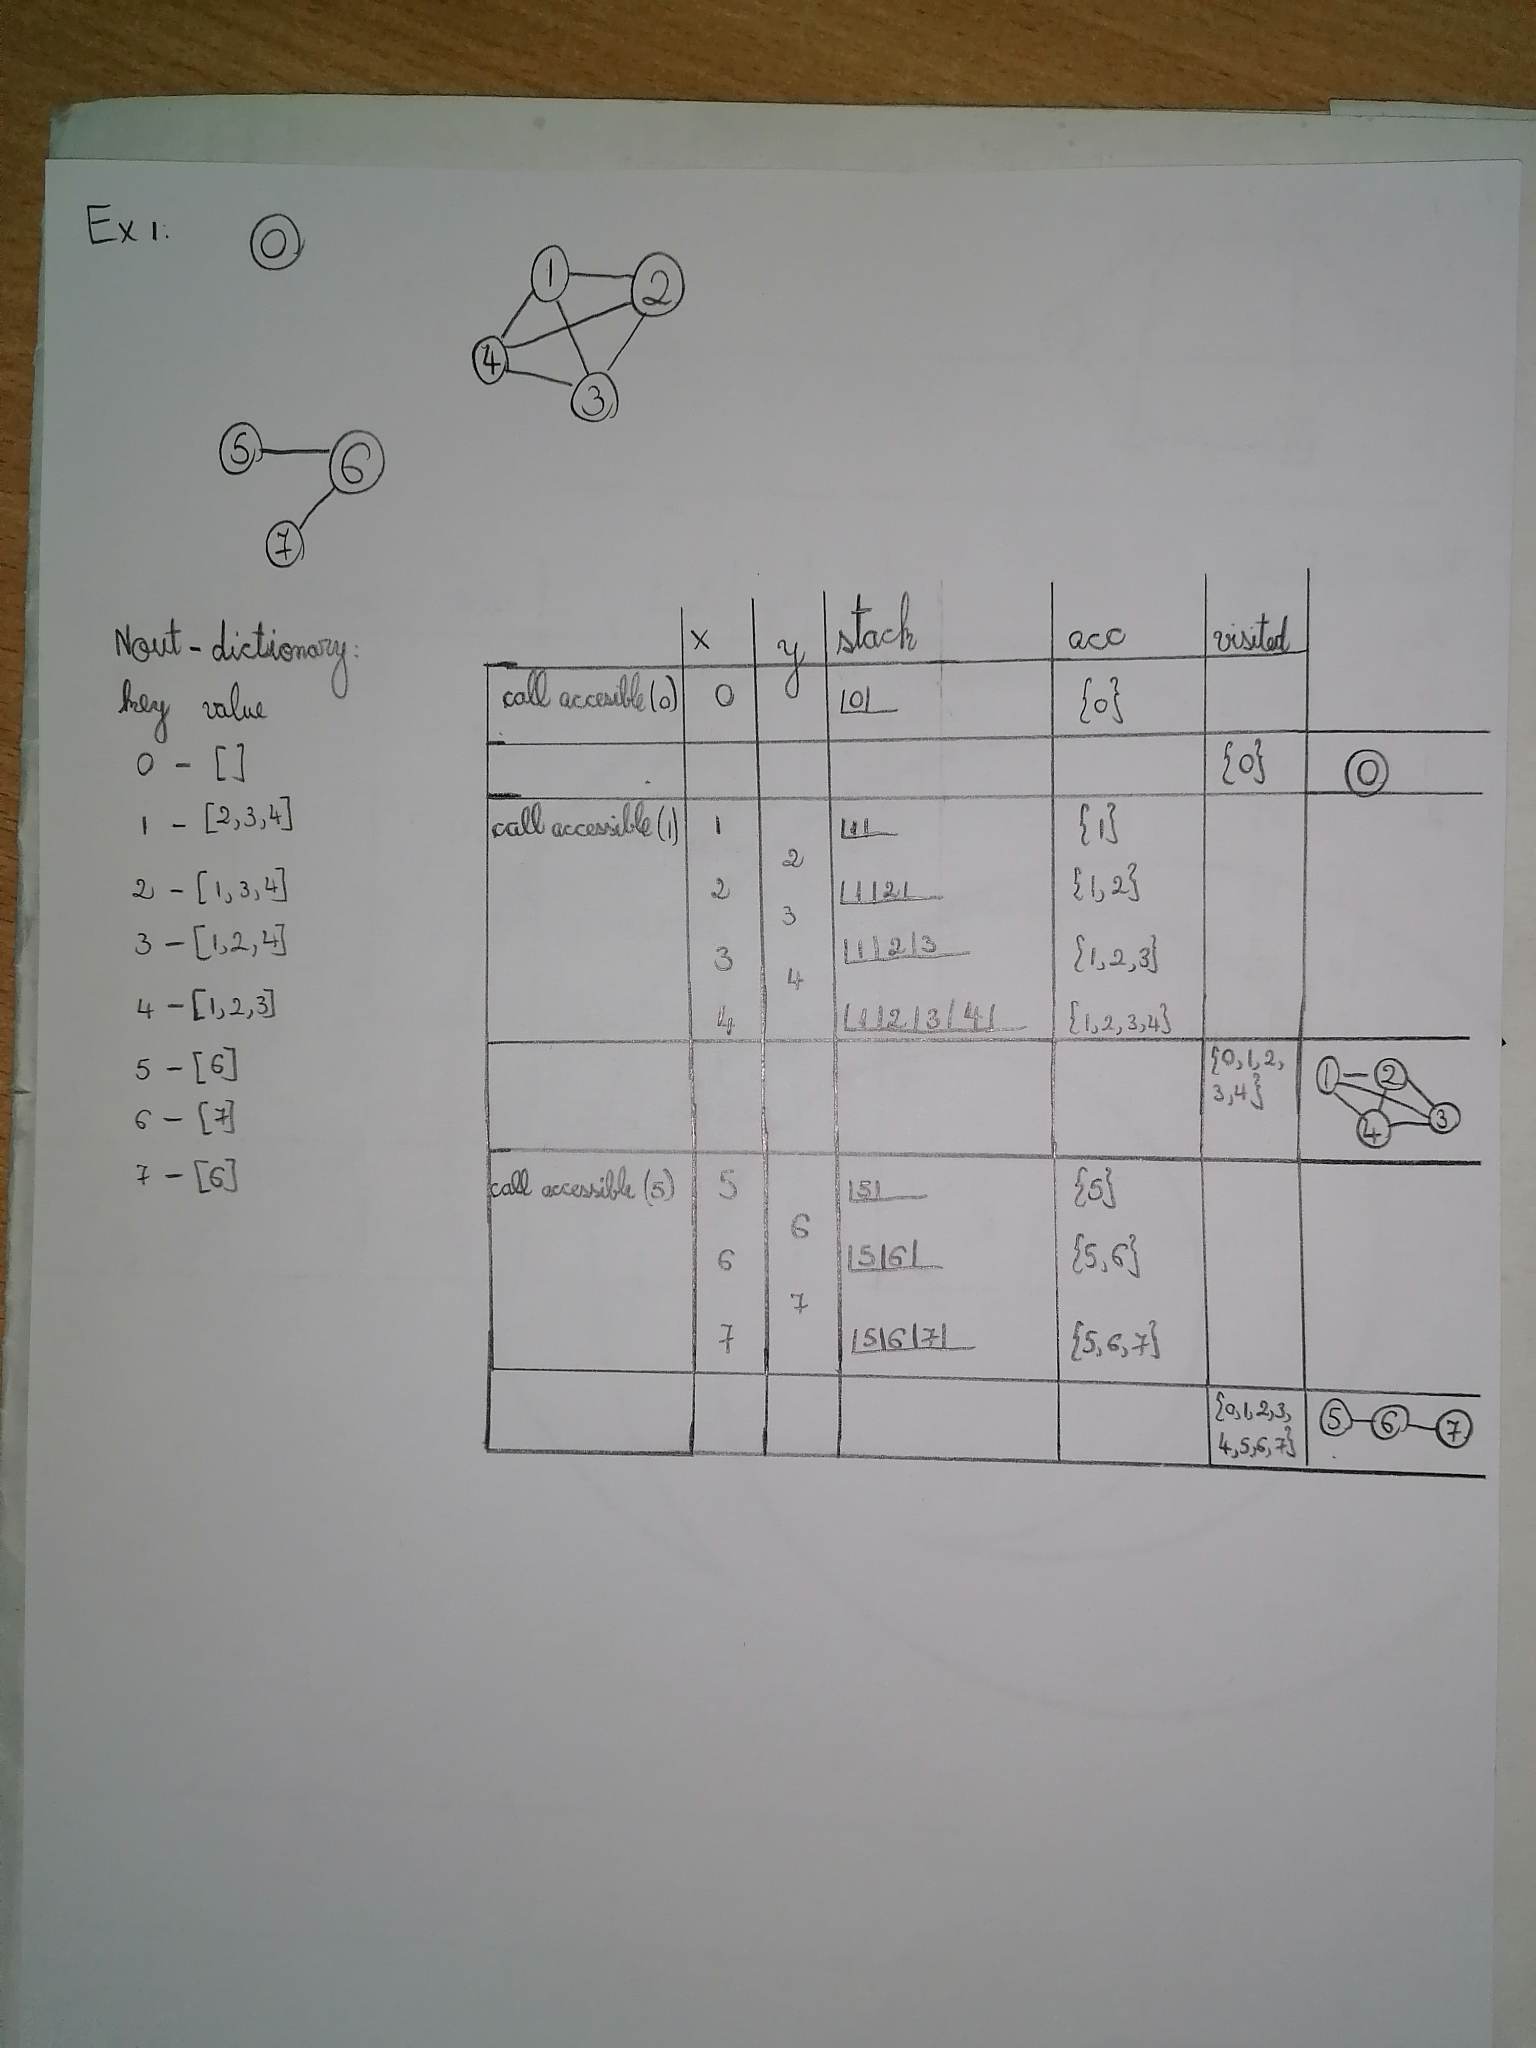 Ex 1:
0
1 2
4
3
5 6
7
Nout-dictionary:
key value
0 - []
1 - [2,3,4]
2 - [1,3,4]
3 - [1,2,4]
4 - [1,2,3]
5 - [6]
6 - [7]
7 - [6]
x y stack acc visited
call accesible(0) 0 |0| {0}
{0} 0
call accessible(1) 1 |1| {1}
2
2 |1|2| {1,2}
3
3 |1|2|3 {1,2,3}
4
4 |1|2|3|4| {1,2,3,4}
{0,1,2, 1 2
3,4} 4 3
call accessible(5) 5 |5| {5}
6
6 |5|6| {5,6}
7
7 |5|6|7| {5,6,7}
{0,1,2,3, 5 6 7
4,5,6,7}